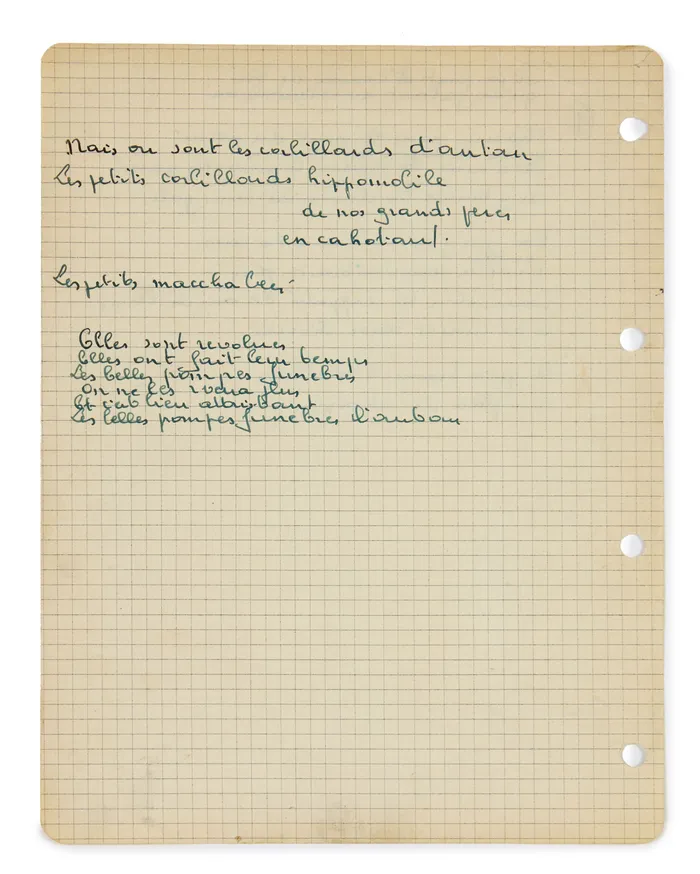 Mais ou sont les corbillards d'antan
Les petits corbillards hippomobile
de nos grands peres
en cahotant.
Les petits macchabées
Elles sont revolues
Elles ont fait leur temps
Les belles pompes funebres
On ne les verra plus
Et c'est bien attristant
Les belles pompes funebres d'antan